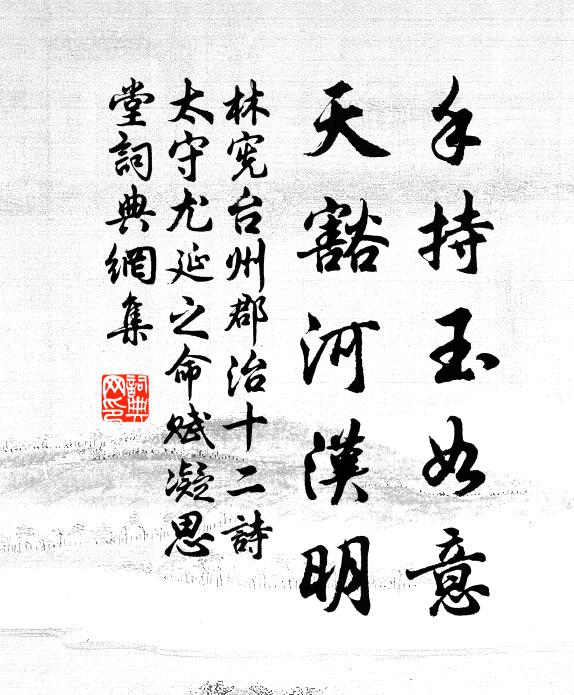 手持玉如意
天豁河漢明
林宪台州郡治十二詩
太守尤延之命赋凝思
堂詞典網集
詞典网印